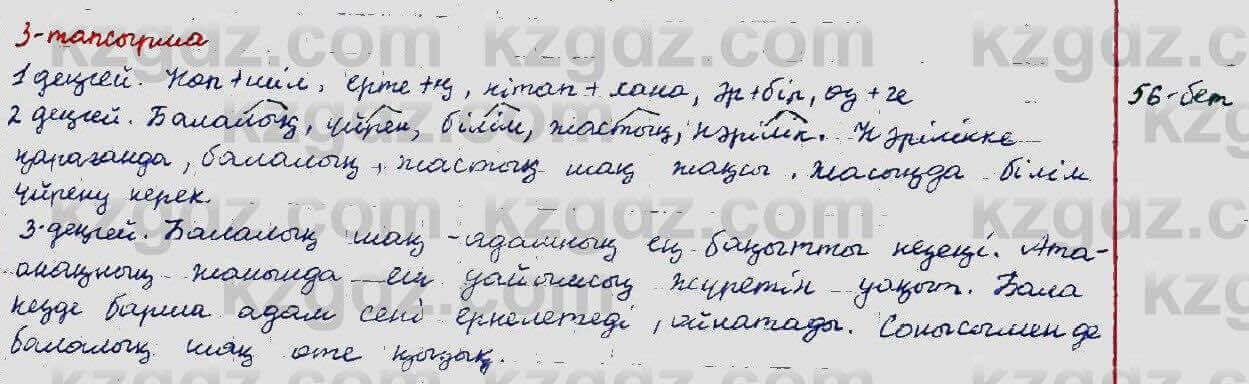 3-тапсырма
1 деңгей. Көп+шіл, ерте+ң, кітап+хана, әр+бір, өз+ге
56-бет
2 деңгей. Балалық, үйрен, білім, жастық, кәрілік. Кәрілікке
қарағанда, балалық, жастық шақ жақсы. Жасыңда білім
үйрену керек.
3-деңгей. Балалық шақ - адамның ең бақытты кезеңі. Ата-
анаңның жанында ең уайымсыз жүретін уақыт. Бала
кезде барша адам сені еркелетеді, ойнатады. Сонысымен де
балалық шақ өте қызық.